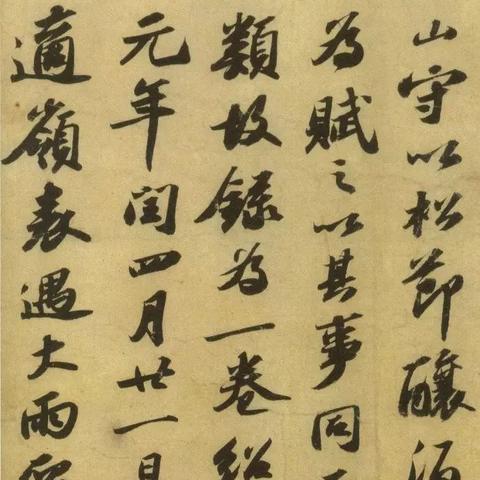 山守以松節釀酒
為賦之以其事同
類故錄為一卷紹
元年閏四月廿一日
適嶺表遇大雨留